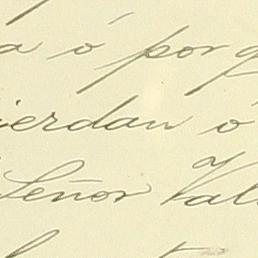 a ó por q
ierdan ó
Señor Vall